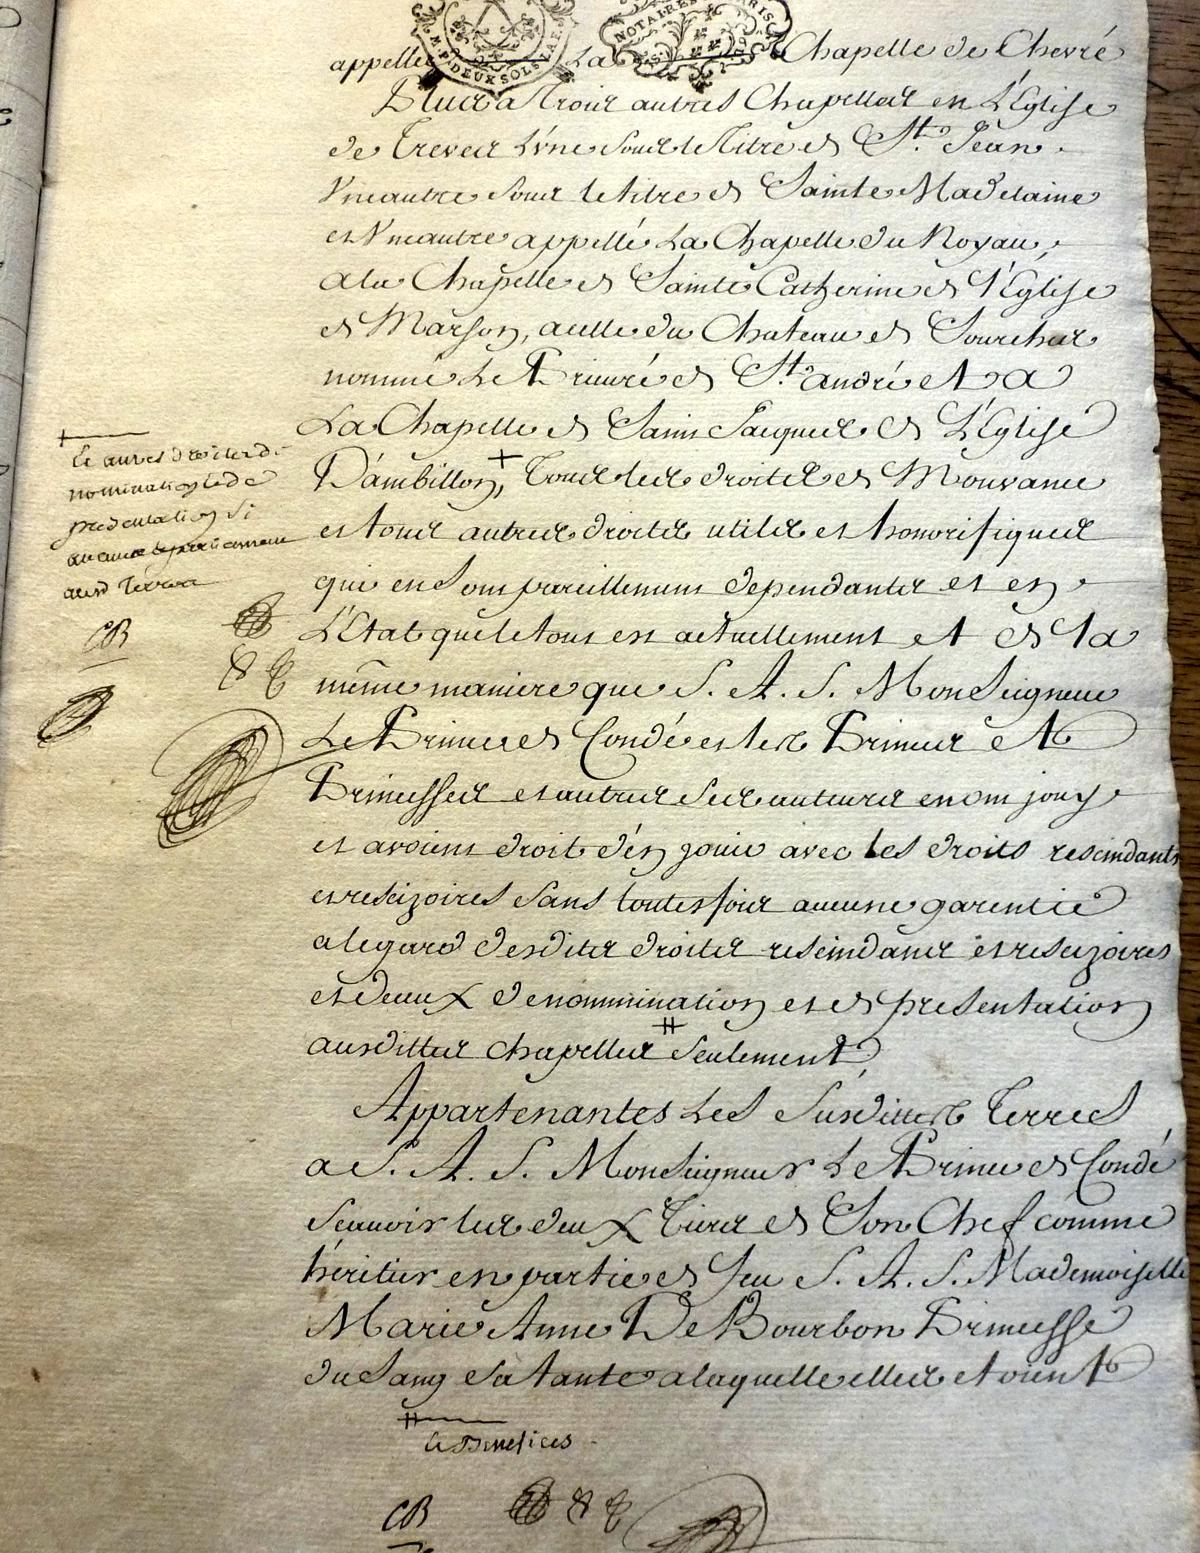 M. P. DEUX SOLS
NOTAIRES PARIS
appellée La Chapelle de Chevré
Plus a trois autres Chapelles en L'Église
de Treves L'une sous le Titre de St. Jean
Une autre sous le titre de Sainte Madelaine
et Une autre appellé La Chapelle du Noyau,
a la Chapelle de Sainte Catherine de l'Eglise
de Marson, a celle du Chateau de Sourches
nommé Le Prieuré de St. andré et a
La Chapelle de Saint Jacques de L'Église
D'ambillon, + Tous les droits de Mouvance
et tous autres droits utiles et honorifiques
qui en sont pareillement dependants et en
L'Etat que le tout est actuellement et de la
même maniere que S. A. S. Monseigneur
Le Prince de Condé et les Princes et
Princesses et autres ses auteurs en ont jouy
et avoient droit d'en jouir avec les droits rescindants
et rescizoires sans toutesfois aucune garentie
a legard desdits droits rescindans et rescizoires
et deceux de nommination et de presentation
ausdittes chapelles # seulement,
Appartenantes Les Susdittes Terres
a S. A. S. Monseigneur Le Prince de Condé
Scavoir les deux Tiers de Son Chef comme
héritier en partie de feu S. A. S. Mademoiselle
Marie Anne De Bourbon Princesse
du Sang Sa tante a laquelle elles etoient
+ et autres droits de
nomination et de
presentation si
aucuns appartiennent
ausd Terres
CB
# et Benefices
CB